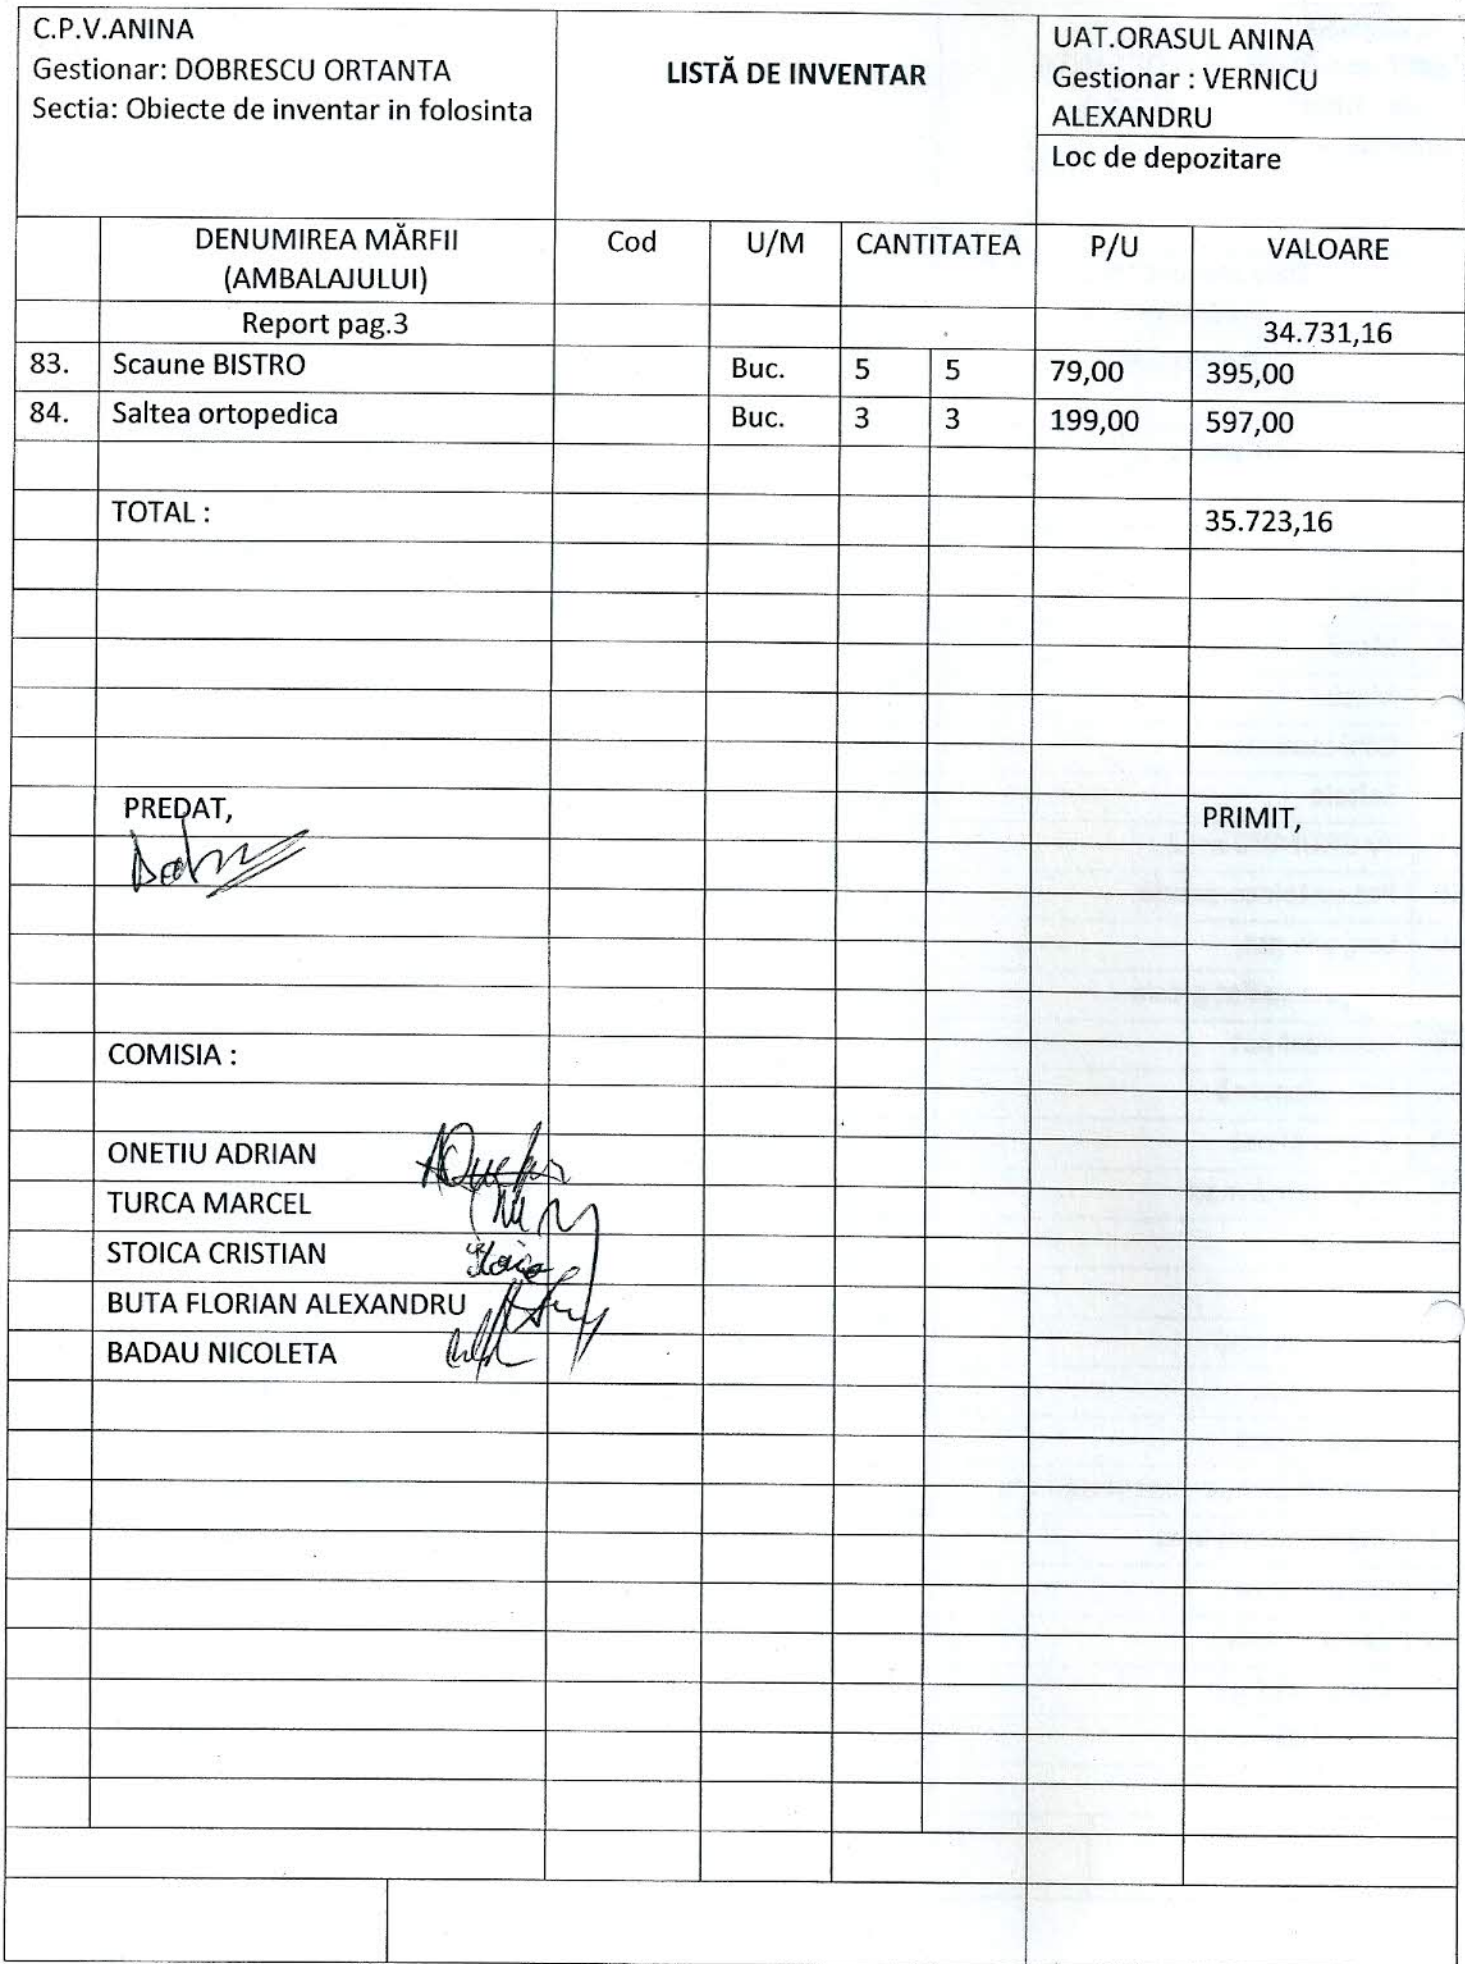 C.P.V.ANINA
Gestionar: DOBRESCU ORTANTA
Sectia: Obiecte de inventar in folosinta
LISTĂ DE INVENTAR
UAT.ORASUL ANINA
Gestionar : VERNICU
ALEXANDRU
Loc de depozitare
DENUMIREA MĂRFII
(AMBALAJULUI)
Cod
U/M
CANTITATEA
P/U
VALOARE
Report pag.3 34.731,16
83. Scaune BISTRO Buc. 5 5 79,00 395,00
84. Saltea ortopedica Buc. 3 3 199,00 597,00
TOTAL : 35.723,16
PREDAT, PRIMIT,
COMISIA :
ONETIU ADRIAN
TURCA MARCEL
STOICA CRISTIAN
BUTA FLORIAN ALEXANDRU
BADAU NICOLETA